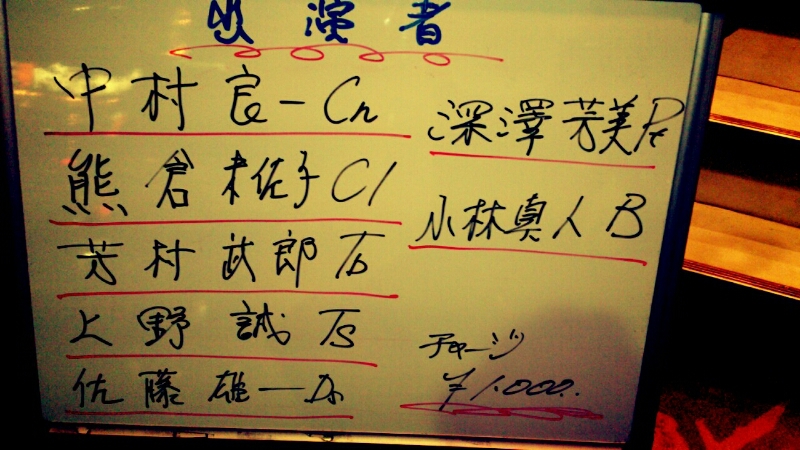 出演者
中村良一 Cn
熊倉未佐子 Cl
芳村武郎 Tb
上野誠 Ts
佐藤雄一 Dr
深澤芳美 Pf
小林真人 B
チャージ
¥1.000.